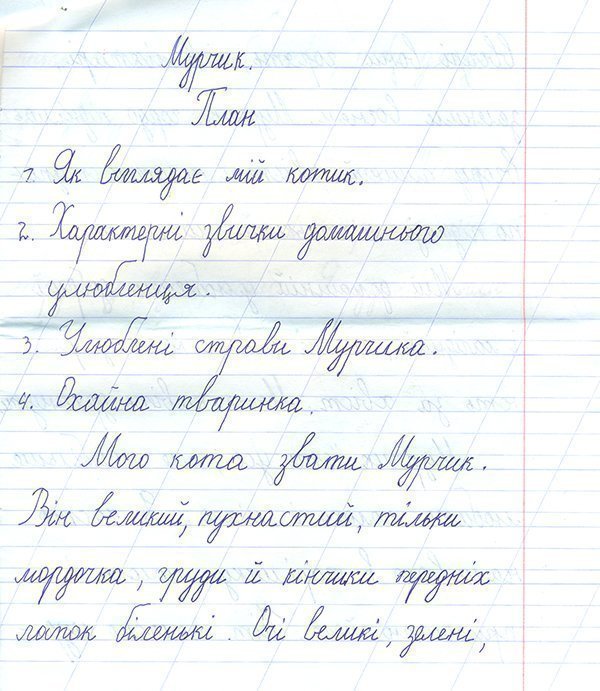 Мурчик.
План
1. Як виглядає мій котик.
2. Характерні звички домашнього
улюбленця.
3. Улюблені страви Мурчика.
4. Охайна тваринка.
Мого кота звати Мурчик.
Він великий, пухнастий, тільки
мордочка, груди й кінчики передніх
лапок біленькі. Очі великі, зелені,